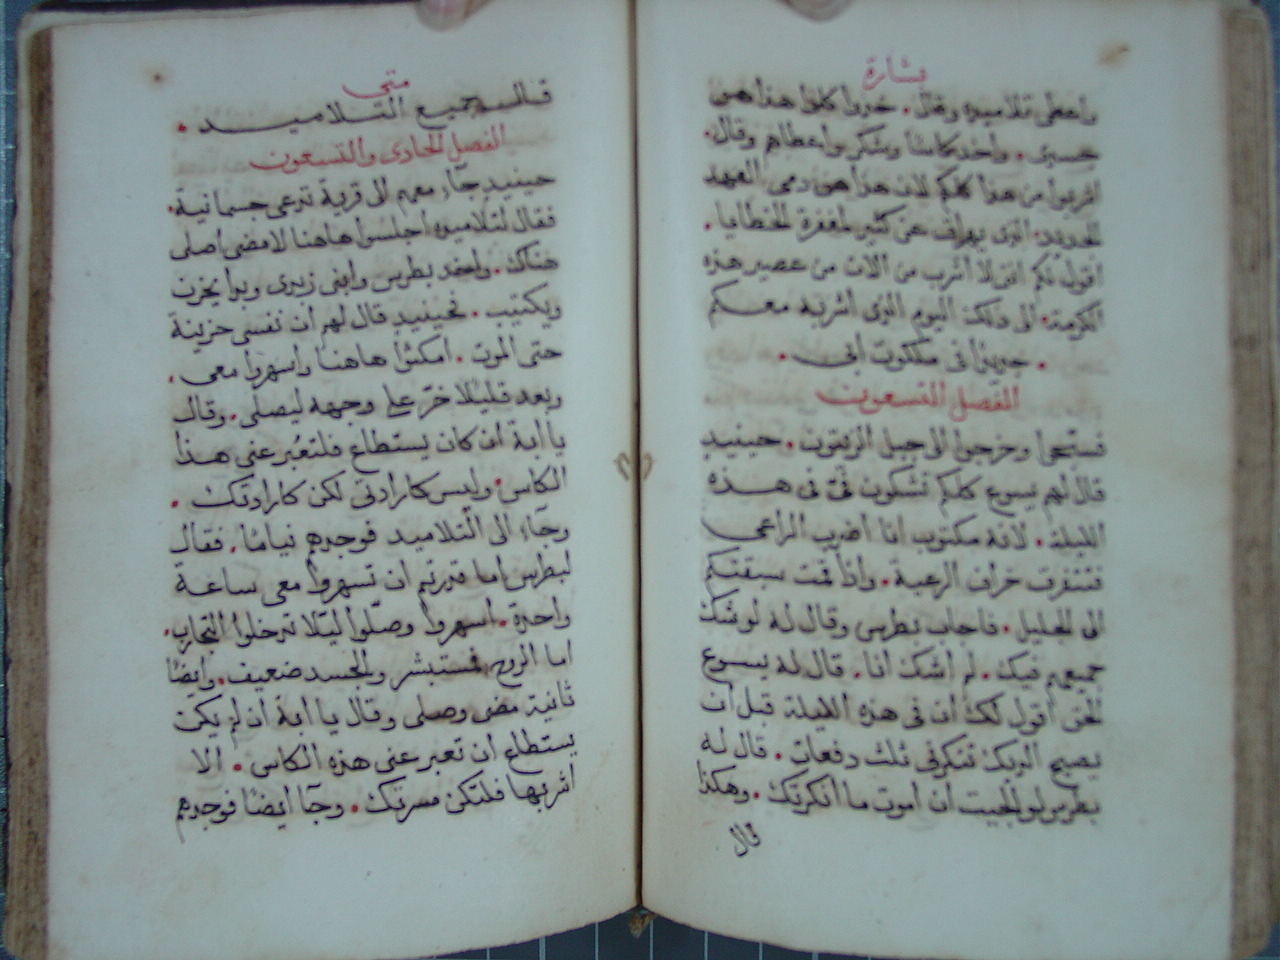 بشارة
واعطى تلاميده وقال. خدوا كلوا هدا هو
جسدى. واخد كاسًا وشكر واعطاهم وقال.
اشربوا من هدا كلكم لان هدا هو دمى العهد
الجديد. الدى يهراق عن كثير لمغفرة الخطايا.
اقول لكم انى لا اشرب من الان من عصير هده
الكرمة. الى دلك اليوم الدى اشربه معكم
. جديدًا فى ملكوت ابى.
الفصل التسعون
فسبّحوا وخرجوا الى جبل الزيتون. حينيد
قال لهم يسوع كلكم تشكون فىّ فى هده
الليلة. لانه مكتوب انا اضرب الراعى
فتتفرق خراف الرعية. وادا قمت سبقتكم
الى الجليل. فاجاب بطرس وقال له لو شك
جميعهم فيك. لم اشك انا. قال له يسوع
الحق اقول لك ان فى هده الليلة قبل ان
يصيح الديك تنكرنى تلت دفعات. قال له
بطرس لو الجيت ان اموت ما انكرتك. وهكدا
قال
متى
قال جميع التلاميد.
الفصل الحادى والتسعون
حينيدٍ جآء معهم الى قرية تدعى جسمانية.
فقال لتلاميده اجلسوا هاهنا لامضى اصلى
هناك. واخد بطرس وابنى زبدى وبدا يحزن
ويكتيب. فحينيدٍ قال لهم ان نفسى حزينة
حتى الموت. امكثوا هاهنا واسهروا معى.
وبعد قليلًا خرّ على وجهه ليصلى. وقال
يا ابة ان كان يستطاع فلتعبُر عنى هدا
الكاس. وليس كارادتى لكن كارادتك.
وجآء الى التلاميد فوجدهم نيامًا. فقال
لبطرس اما قدرتم ان تسهروا معى ساعة
واحدة. اسهروا وصلّوا ليلا تدخلوا التجارب.
اما الروح فمستبشر والجسد ضعيف. وايضًا
ثانية مضى وصلى وقال يا ابة ان لم يكن
يستطاع ان تعبر عنى هده الكاس. الا
اشربها فلتكن مسرتك. وجآ ايضًا فوجدهم